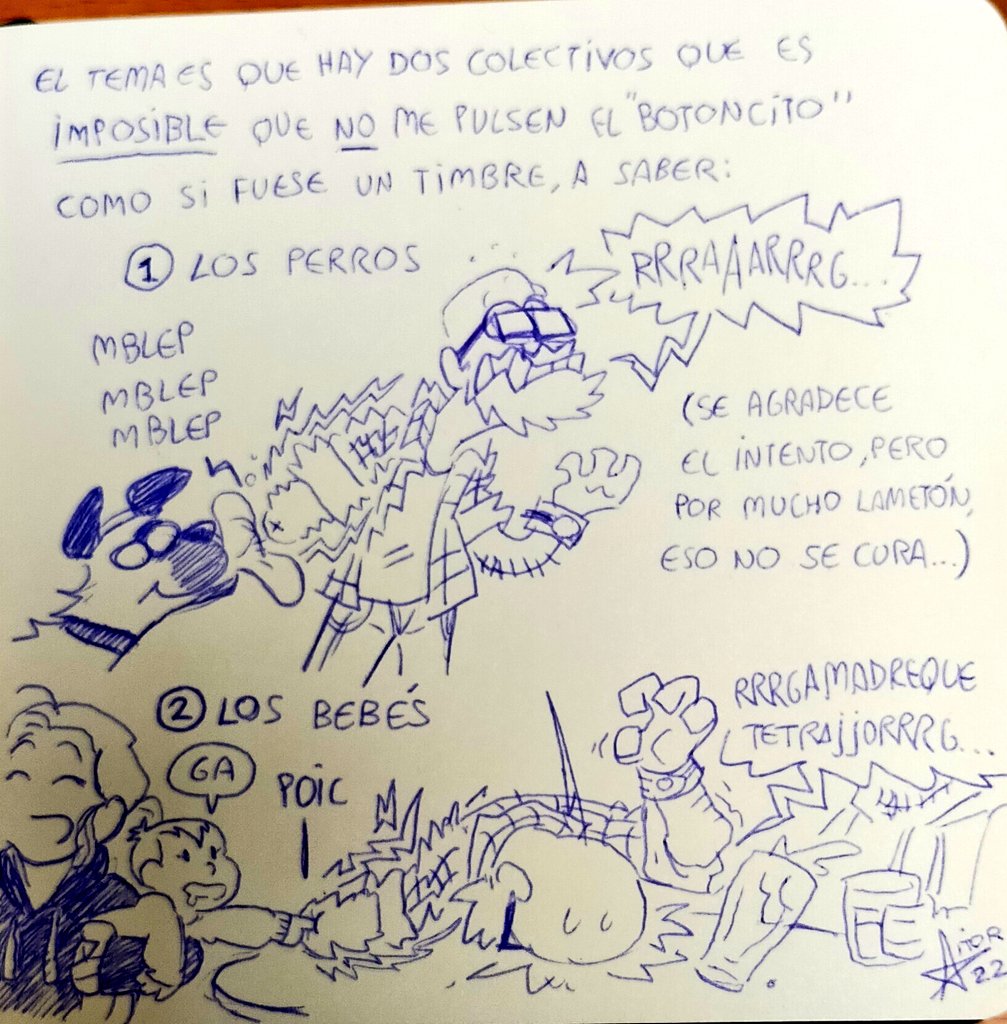 EL TEMA ES QUE HAY DOS COLECTIVOS QUE ES
IMPOSIBLE QUE NO ME PULSEN EL "BOTONCITO"
COMO SI FUESE UN TIMBRE, A SABER:
① LOS PERROS
RRRAAAARRRG...
MBLEP
MBLEP
MBLEP
(SE AGRADECE
EL INTENTO, PERO
POR MUCHO LAMETÓN,
ESO NO SE CURA...)
② LOS BEBÉS
GA
POIC
RRRGAMADREQUE
TETRAJJORRRG...
AITOR
22